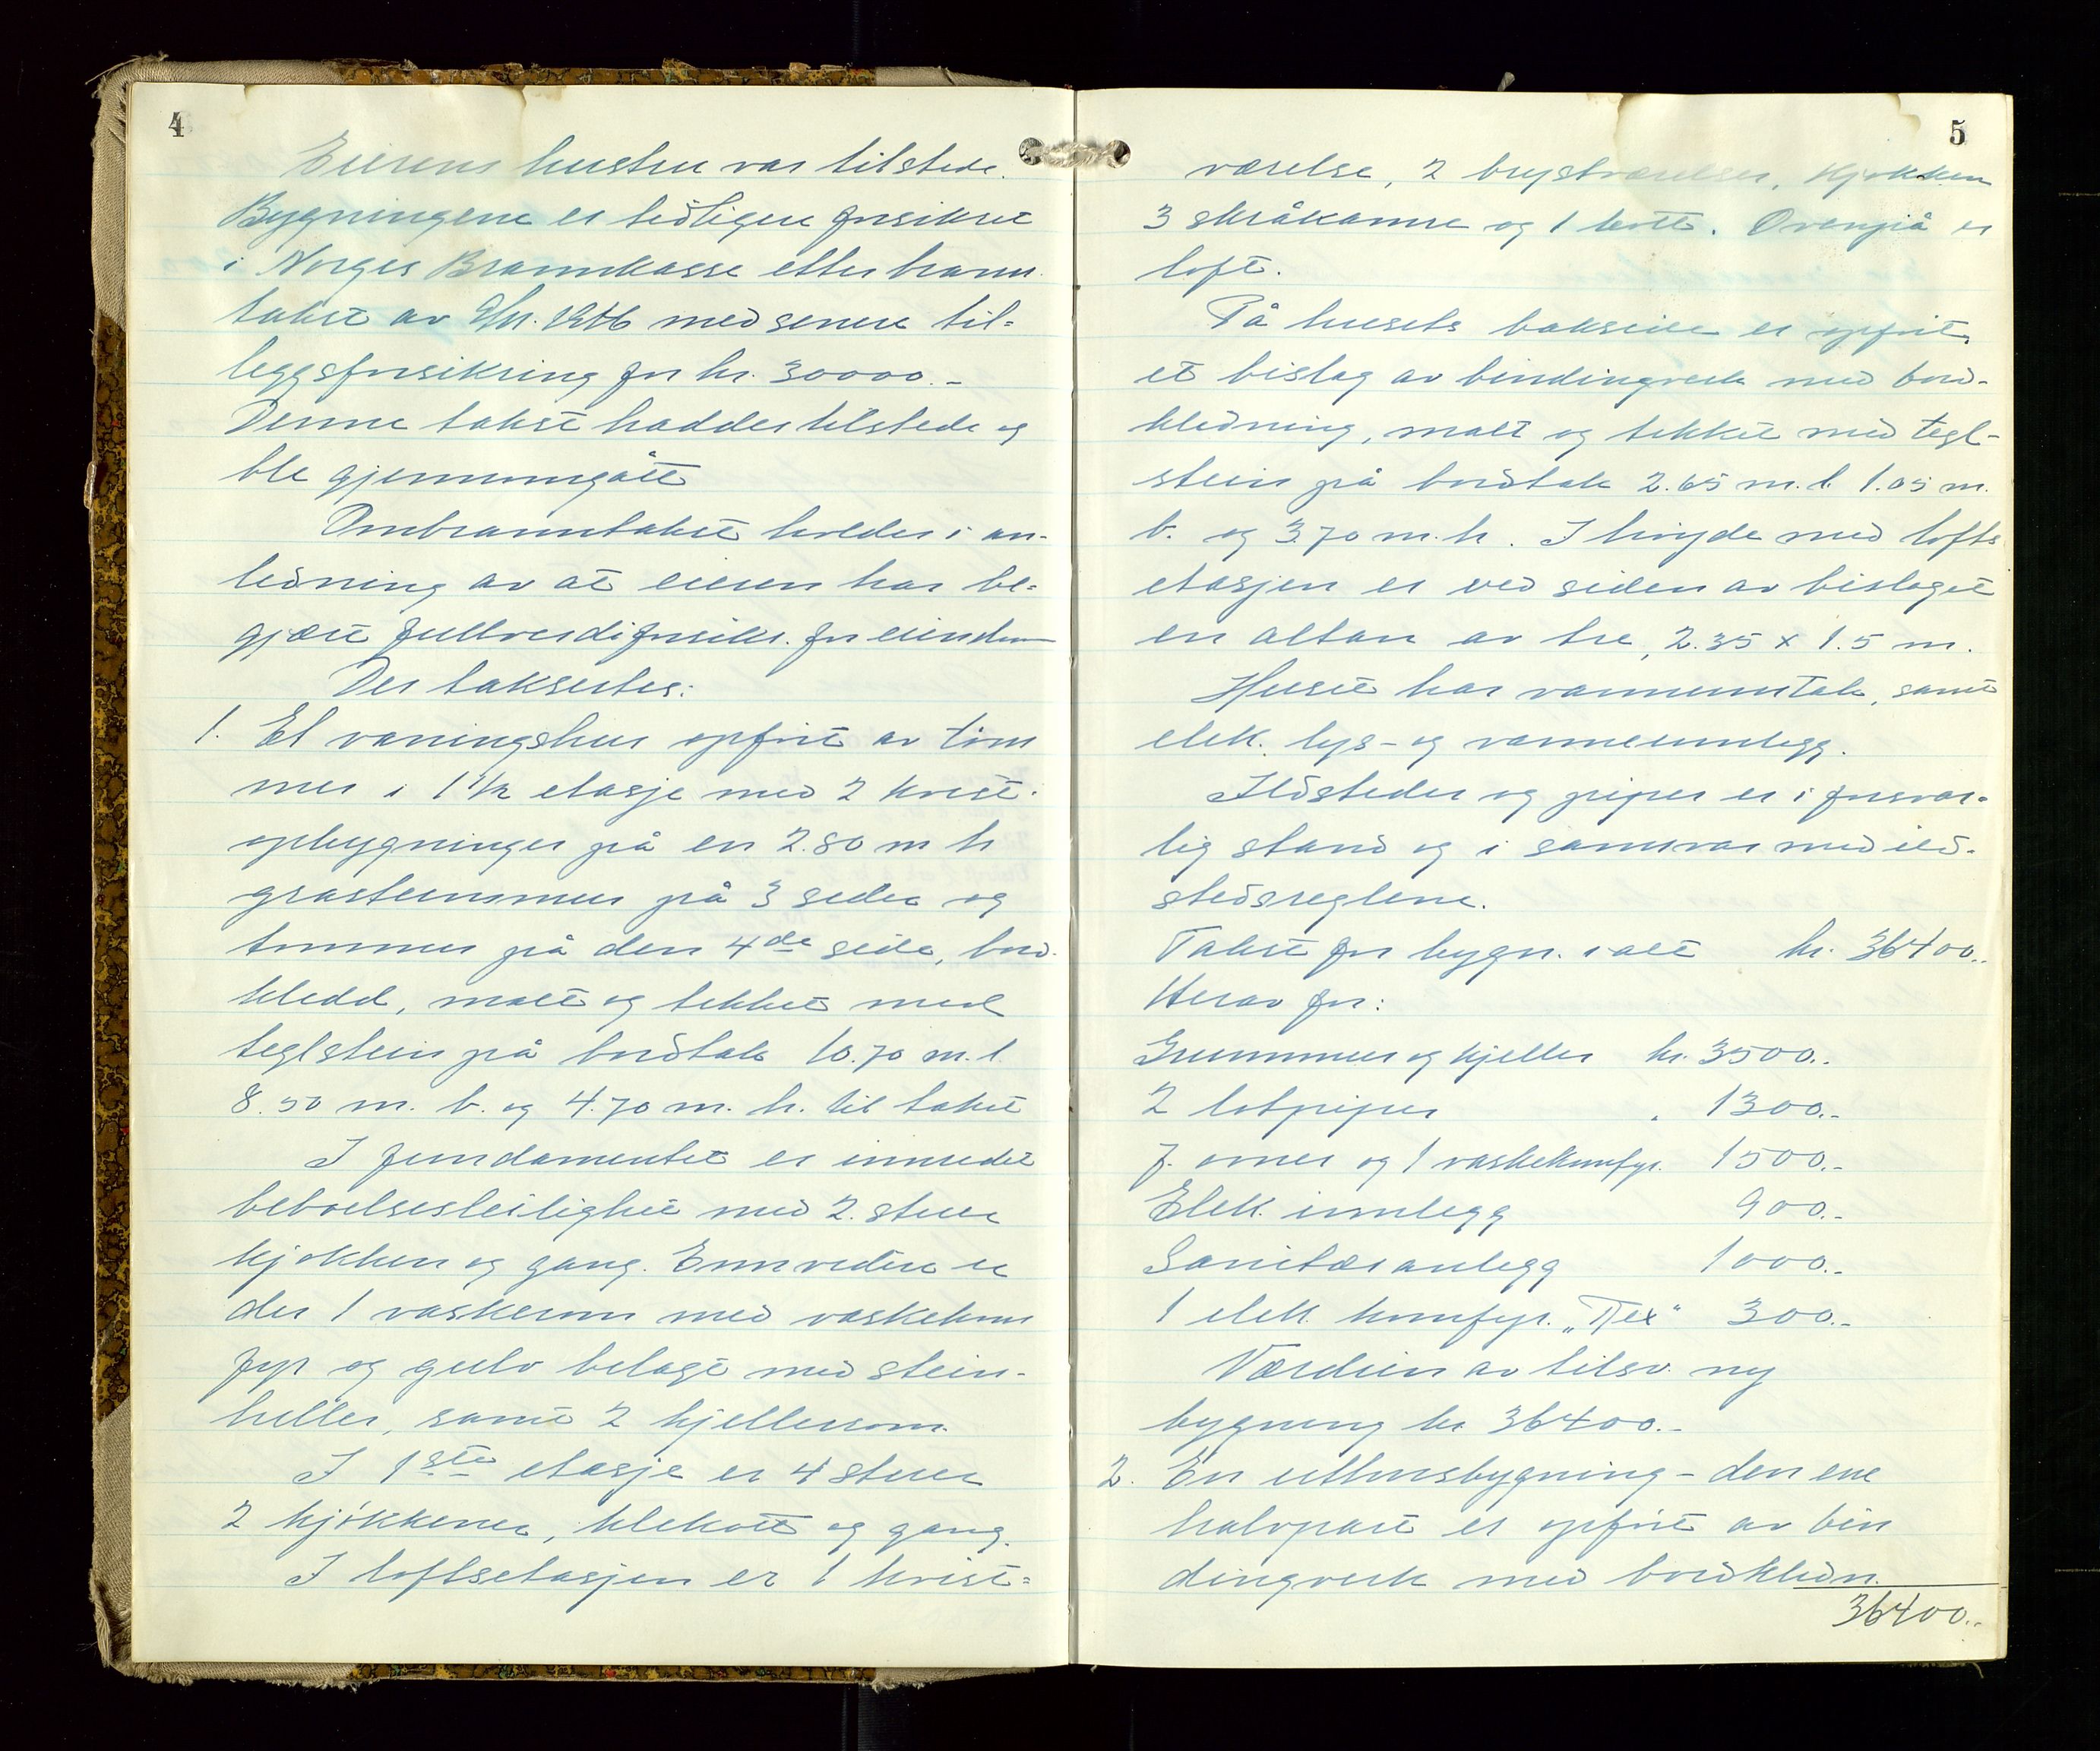 4
Eierens hustru var tilstede.
Bygningene er tidligere forsikret
i Norges Brannkasse etter brann
takst av med senere til=
leggsforsikring for kr. 30000.-
Denne takst haddes tilstede og
ble gjennomgått
Ombranntakst holdes i an-
ledning av at eieren har be=
gjært fullverdiforsikr. for eiendom
Der taksertes:
1. Et våningshus opført av tøm
mer i 1 1/2 etasje med 2 kvist-
opbygninger på en 2.80 m h
gråsteinsmur på 3 sider og
tømmer på den 4de side, bord-
kledd, malt og tekket med
teglstein på bordtak 10.70 m. l.
8.50 m. b. og 4.70 m. h. til taket
I fundamentet er innredet
beboelsesleilighet med 2. stuer
kjøkken og gang. Ennvidere er
der 1 vaskerom med vaskekom
fyr og gulv belagt med stein-
heller, samt 2 kjellerrom.
I 1ste etasje er 4 stuer
2 kjøkkener, klekott og gang.
I loftsetasjen er 1 kvist=
5
værelse, 2 brystværelser, kjøkken
3 skråkamre og 1 kott. Ovenpå er
loft.
På husets bakside er opført
et bislag av bindingverk med bord-
kledning, malt og tekket med tegl-
stein på bordtak 2.65 m. l. 1.05 m.
b. og 3.70 m. h. I høyde med lofts
etasjen er ved siden av bislaget
en altan av tre, 2.35 x 1.5 m.
Huset har vanninntak, samt
elek. lys- og varmeinnlegg.
Ildsteder og piper er i forsvar-
lig stand og i samsvar med ild-
stedsreglene.
Takst for bygn. i alt kr. 36400.-
Herav for:
Grunnmur og kjeller kr. 3500.-
2 løtpiper " 1300.-
7. ovner og 1 vaskekomfyr. 1500.-
Elek. innlegg 900.-
Sanitæranlegg 1000.-
1 elek. komfyr. „Rex" 300.-
Verdien av tilsv. ny
bygning kr 36400.-
2. En uthusbygning - den ene
halvpart er opført av bin
dingverk med bordkledn.
36400.-